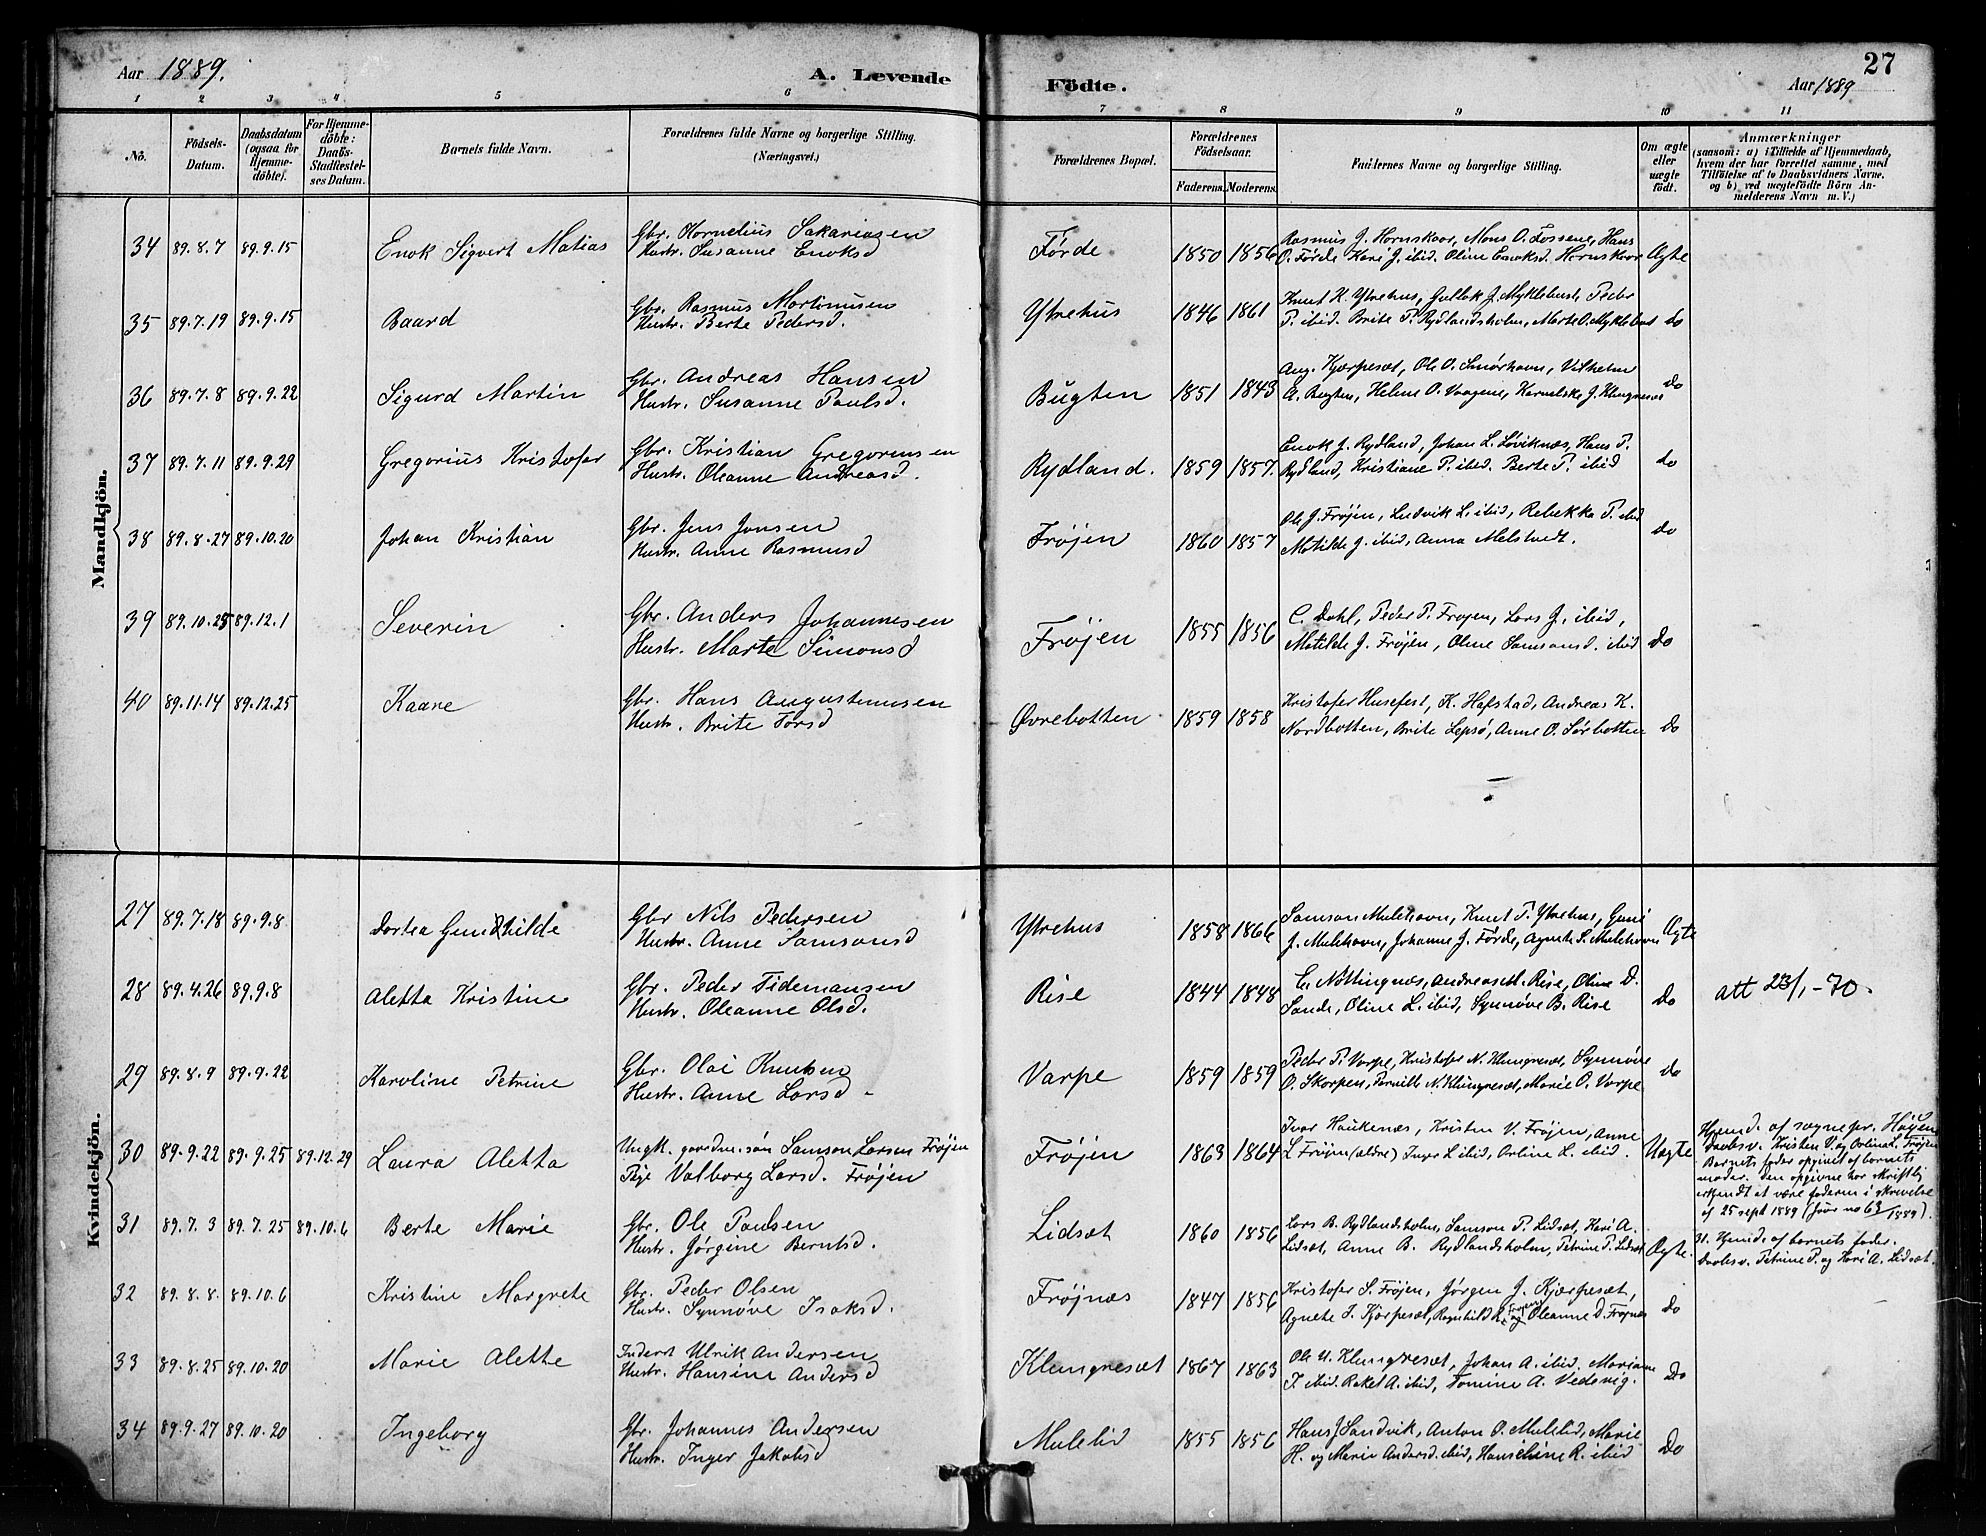 Aar 1889.
A. Levende
Födte.
27
Aar 1889
1 2 3 4 5 6 7 8 9 10 11
No.
Födsels-Datum.
Daabsdatum (ogsaa for Hjemme-döbte).
For Hjemme-döbte: Daabs-Stadfæstel-ses Datum.
Barnets fulde Navn.
Forældrenes fulde Navne og borgerlige Stilling. (Næringsvei.)
Forældrenes Bopæl.
Forældrenes Födselsaar.
Faderens. Moderens.
Faddernes Navne og borgerlige Stilling.
Om ægte eller uægte födt.
Anmærkninger
(saasom: a) i Tilfælde af Hjemmedaab,
hvem der har forrettet samme, med
Tilföielse af to Daabsvidners Navne,
og b) ved uægtefödte Börn An-
melderens Navn m. V.)
Mandkjön.
34 89.8.7 89.9.15 Enok Sigvert Matias Gbr. Kornelius Sakariasen
Hustr. Susanne Enoksd Førde 1850 1856 Rasmus J. Hornskaar, Mons O. Fossene, Hans
O. Førde Kari J. ibid. Oline Enoksd. Hornskaar Ægte
35 89.7.19 89.9.15 Baard Gbr. Rasmus Martinusen
Hustr. Berte Pedersd. Ytrehus 1846 1861 Knut K. Ytrehus, Gullak J. Myklebust, Peder
P. ibid. Brite P. Rydlandsholm, Marte O. Myklebust do
36 89.7.8 89.9.22 Sigurd Martin Gbr. Andreas Hansen
Hustr. Susanne Paulsd. Bugten 1851 1843 Aug. Kjærpesæt, Ole O. Smørhavn, Vilhelm
A. Bugten, Helene O. Vaagene, Kornelske J. Klungresæt do
37 89.7.11 89.9.29 Gregorius Kristofer Gbr. Kristian Gregoriussen
Hustr. Oleanne Andreasd. Rydland. 1859 1857. Enok J. Rydland, Johan L. Løviknæs, Hans P.
Rydland, Kristiane P. ibid. Berte P. ibid do
38 89.8.27 89.10.20 Johan Kristian Gbr. Jens Jonsen
Hustr. Anne Rasmusd Frøjen 1860 1857 Ole J. Frøjen, Ludvik L. ibid, Rebekka P. ibid
Matilde J. ibid, Anna Melstvedt. do
39 89.10.25 89.12.1 Severin Gbr. Anders Johannesen
Hustr. Marte Simonsd Frøjen 1855 1856 C. Dahl, Peder P. Frøjen, Lars J. ibid,
Matilde J. Frøjen, Oline Samsonsd. ibid do
40 89.11.14 89.12.25 Kaare Gbr. Hans Augustinusen
Hustr. Brite Torsd Øvrebotten 1859 1858 Kristofer Husefest, K. Hafstad, Andreas K.
Nordbotten, Brite Lepsø, Anne O. Sørbotten do
Kvindekjön.
27 89.7.18 89.9.8 Dortea Gundhilde Gbr Nils Pedersen
Hustr. Anne Samsonsd Ytrehus 1858 1866 Samson Mulehavn, Knut P. Ytrehus, Guni
J. Mulehavn, Johanne J. Førde, Agnete S. Mulehavn Ægte
28 89.4.26 89.9.8 Aletta Kristine Gbr. Peder Tidemansen
Hustr. Oleanne Olsd. Rise 1844 1848 C. Nøttingnæs, Andreas M. Rise, Oline D.
Sande, Oline L. ibid, Synnøve B. Rise do att 23/1-70.
29 89.8.9 89.9.22 Karoline Petrine Gbr. Olai Knutsen
Hustr. Anne Larsd. Varpe 1859 1859 Peder P. Varpe, Kristofer N. Klungresæt, Synnøve
O. Skorpen, Pernille N. Klungresæt, Marie O. Varpe do
30 89.9.22 89.9.25 89.12.29 Laura Aletta Ungk. gaardm.søn Samson Larsen Frøjen
Pige Valborg Larsd. Frøjen Frøjen 1863 1864 Ivar Haukenæs, Kristen V. Frøjen, Anne
L Frøjen (ældre) Inger L ibid, Arline L. ibid. Uægte Hjemd. af sognepr. Høyem
Daabsv. Kristen V. og Arlina L. Frøjen
Barnets fader opgivet af barnets
moder. Den opgivne har skriftlig
erkjendt at være faderen i skrivelse
af 25 sept 1889 (Jour no 63/1889).
31 89.7.3 89.7.25 89.10.6 Berte Marie Gbr. Ole Paulsen
Hustr. Jørgine Berntsd. Lidsæt 1860 1856 Lars B. Rydlandsholm, Samson P. Lidsæt, Kari A.
Lidsæt, Anne B. Rydlandsholm, Petrine P. Lidsæt Ægte. 31. Hjemd. af barnets fader.
Daabsv. Petrine P. og Kari A. Lidsæt.
32 89.8.8. 89.10.6 Kristine Margrete Gbr. Peder Olsen
Hustr. Synnøve Isaksd. Frøjnæs 1847 1856 Kristofer S. Frøjen, Jørgen J. Kjærpesæt,
Agnete I. Kjærpesæt, Ragnhild R. Frøjen og Oleanne D. Frøjnæs do
33 89.8.25 89.10.20 Marie Alette Inderst Ulrik Andersen
Hustr. Hansine Andersd Klungresæt 1867 1863 Ole U. Klungresæt, Johan A. ibid. Mariane
I. ibid. Rakel A. ibid, Tomine A. Vedvig. Do
34 89.9.27 89.10.20 Ingeborg Gbr. Johannes Andersen
Hustr. Inger Jakobsd Mulelid 1855 1856 Hans J Sandvik, Anton O. Mulelid, Marie
H. og Marie Andersd. ibid, Hanschine R. ibid Do